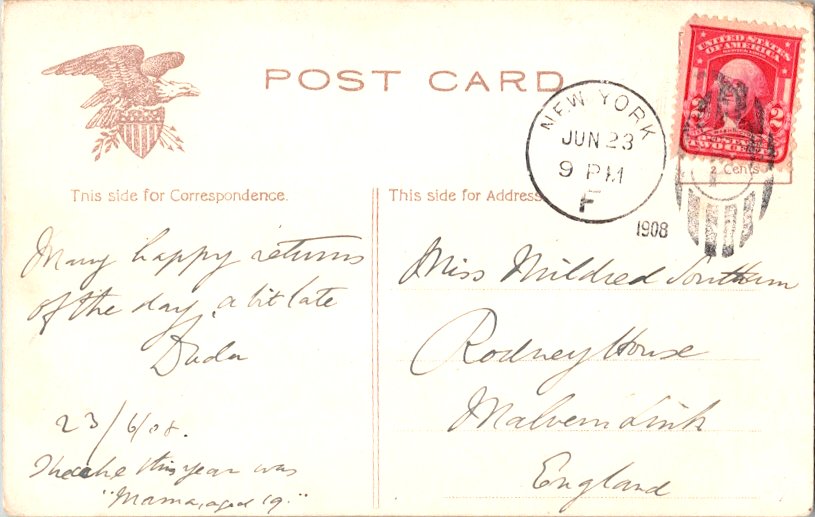 POST CARD
UNITED STATES
OF AMERICA
2 2
WASHINGTON
POSTAGE
TWO CENTS
2 Cents
NEW YORK
JUN 23
9 PM
F
1908
This side for Correspondence.
Many happy returns
of the day, a bit late
Dada
23/6/08.
this year was
"Mama, aged 19."
This side for Address
Miss Mildred Southam
Rodney House
Malvern Link
England